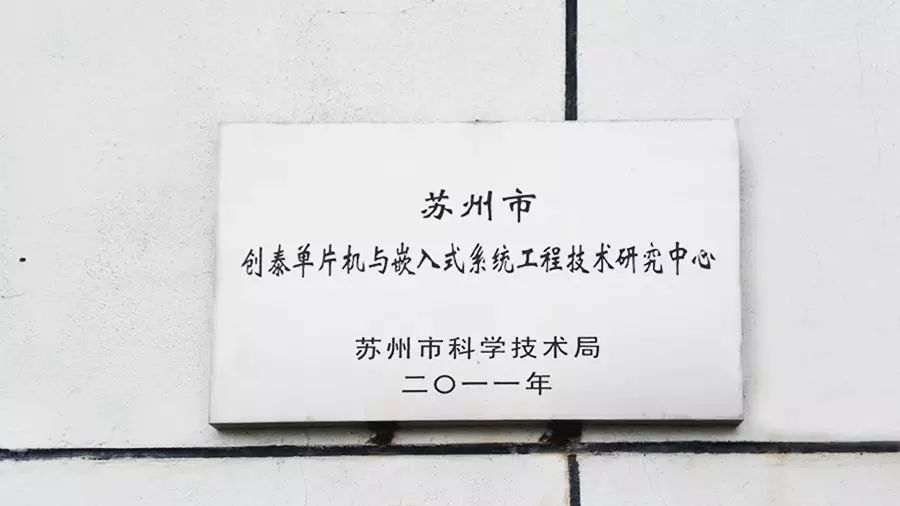 苏州市
创泰单片机与嵌入式系统工程技术研究中心
苏州市科学技术局
二〇一一年